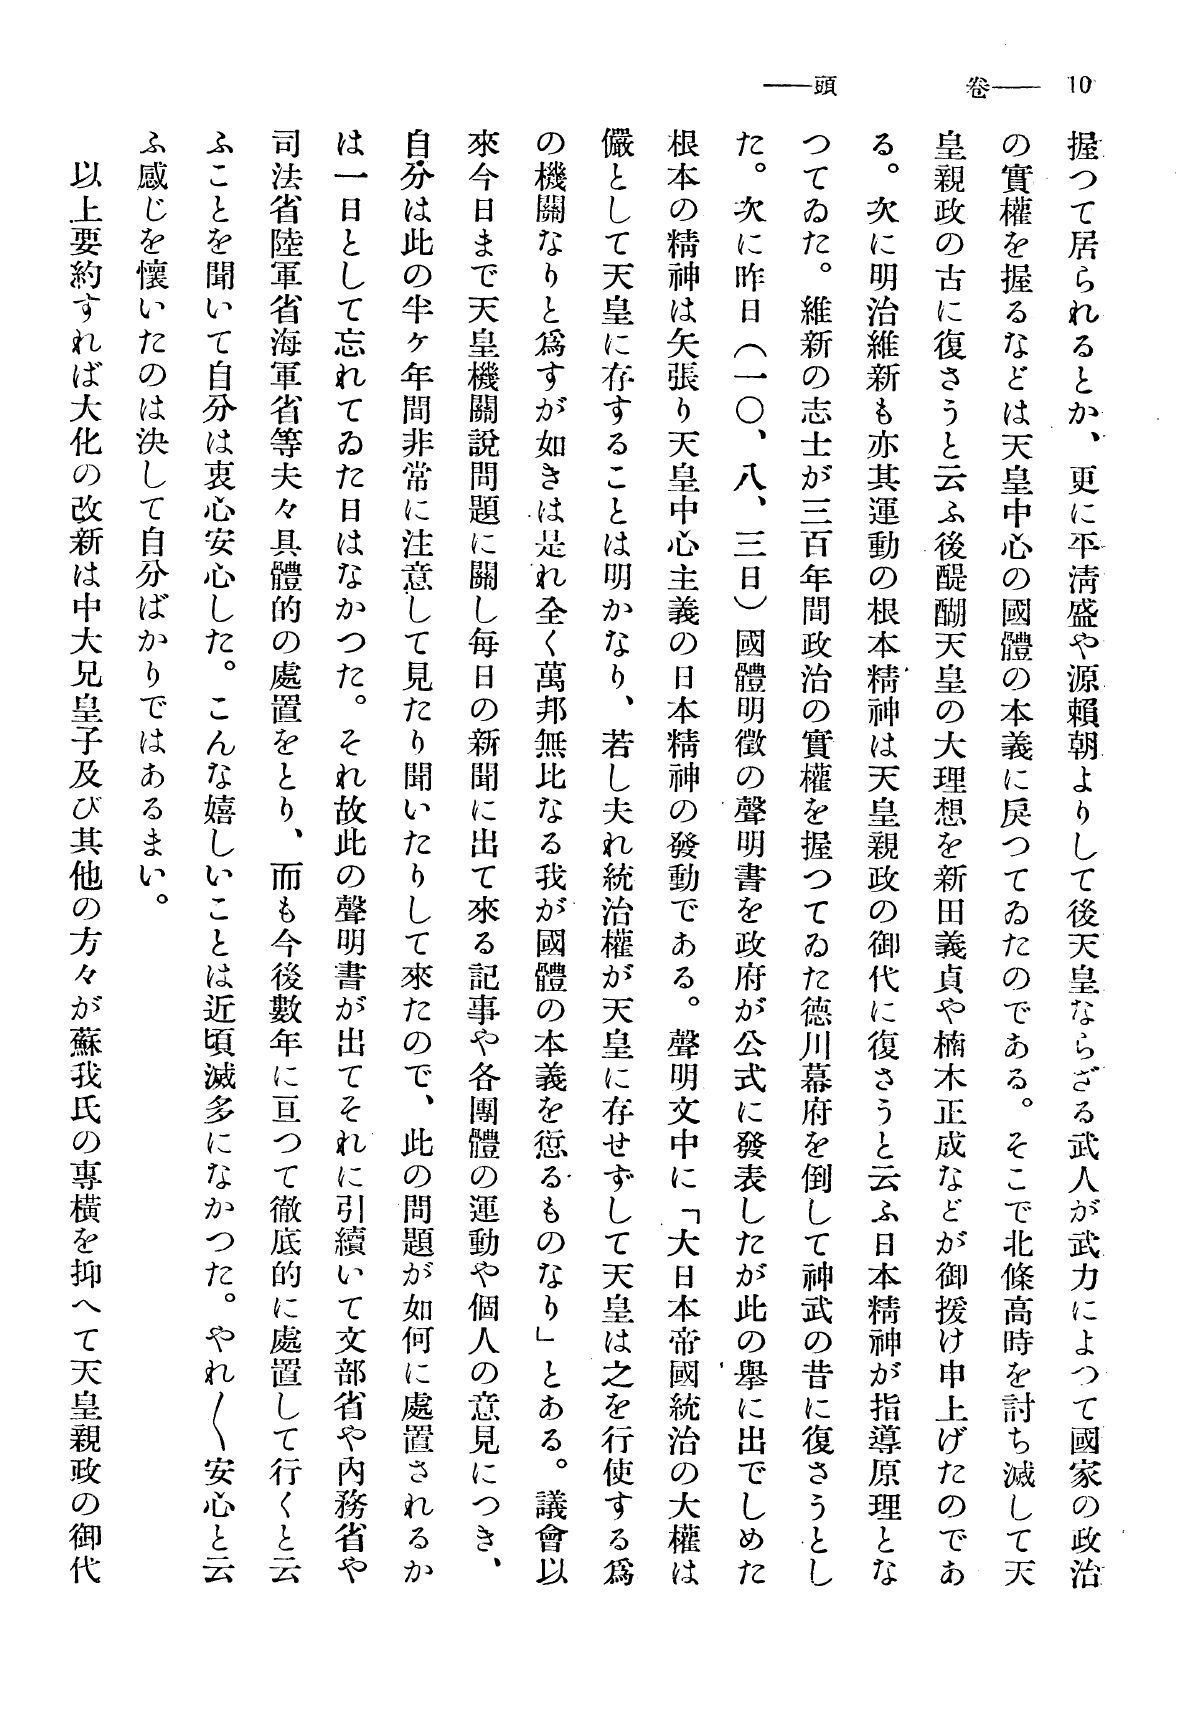 10 ――卷 頭――
握つて居られるとか、更に平淸盛や源賴朝よりして後天皇ならざる武人が武力によつて國家の政治
の實權を握るなどは天皇中心の國體の本義に戾つてゐたのである。そこで北條高時を討ち滅して天
皇親政の古に復さうと云ふ後醍醐天皇の大理想を新田義貞や楠木正成などが御援け申上げたのであ
る。次に明治維新も亦其運動の根本精神は天皇親政の御代に復さうと云ふ日本精神が指導原理とな
つてゐた。維新の志士が三百年間政治の實權を握つてゐた德川幕府を倒して神武の昔に復さうとし
た。次に昨日（一〇、八、三日）國體明徵の聲明書を政府が公式に發表したが此の擧に出でしめた
根本の精神は矢張り天皇中心主義の日本精神の發動である。聲明文中に「大日本帝國統治の大權は
儼として天皇に存することは明かなり、若し夫れ統治權が天皇に存せずして天皇は之を行使する爲
の機關なりと爲すが如きは是れ全く萬邦無比なる我が國體の本義を愆るものなり」とある。議會以
來今日まで天皇機關說問題に關し每日の新聞に出て來る記事や各團體の運動や個人の意見につき、
自分は此の半ヶ年間非常に注意して見たり聞いたりして來たので、此の問題が如何に處置されるか
は一日として忘れてゐた日はなかつた。それ故此の聲明書が出てそれに引續いて文部省や內務省や
司法省陸軍省海軍省等夫々具體的の處置をとり、而も今後數年に亘つて徹底的に處置して行くと云
ふことを聞いて自分は衷心安心した。こんな嬉しいことは近頃滅多になかつた。やれ〳〵安心と云
ふ感じを懷いたのは決して自分ばかりではあるまい。
以上要約すれば大化の改新は中大兄皇子及び其他の方々が蘇我氏の專橫を抑へて天皇親政の御代